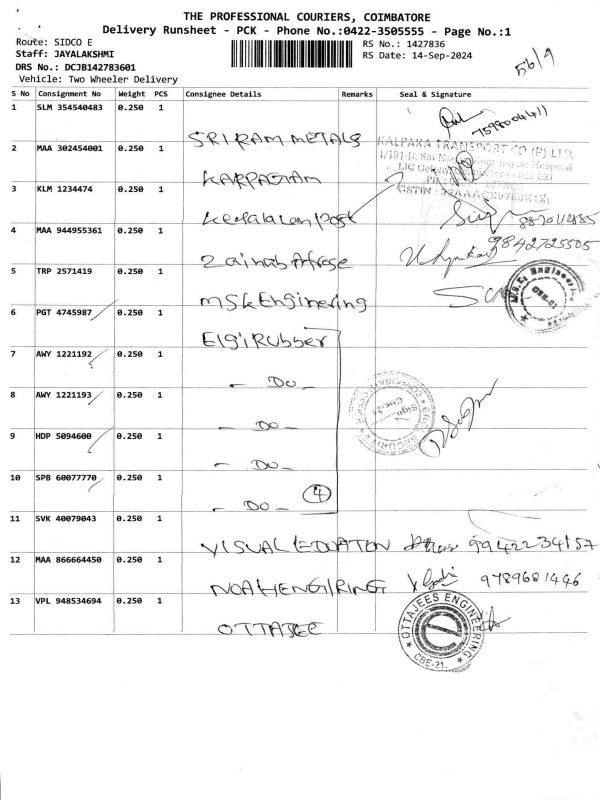 THE PROFESSIONAL COURIERS, COIMBATORE
Delivery Runsheet - PCK - Phone No.:0422-3505555 - Page No.:1
Route: SIDCO E
RS No.: 1427836
Staff: JAYALAKSHMI
RS Date: 14-Sep-2024
DRS No.: DCJB142783601
Vehicle: Two Wheeler Delivery
56/9
S No Consignment No Weight PCS Consignee Details Remarks Seal & Signature
1 SLM 354540483 0.250 1 SRI RAM METALS
2 MAA 302454001 0.250 1 KARPAGAM
KALPAKA TRANSPORT CO (P) LTD
3 KLM 1234474 0.250 1
8870112485
4 MAA 944955361 0.250 1 Zainab Afrose 9842725505
5 TRP 2571419 0.250 1 MSK Enginering
6 PGT 4745987 0.250 1 Elgi Rubber
7 AWY 1221192 0.250 1 - DO -
8 AWY 1221193 0.250 1 - DO -
9 HDP 5094600 0.250 1 - DO -
10 SPB 60077770 0.250 1 - DO - 4
11 SVK 40079043 0.250 1 VISUAL EDUATION 9942234157
12 MAA 866664450 0.250 1 NOAH ENGIRING 9789681446
13 VPL 948534694 0.250 1 OTTAJEE
OTTAJEES ENGINEERING
CBE-21.